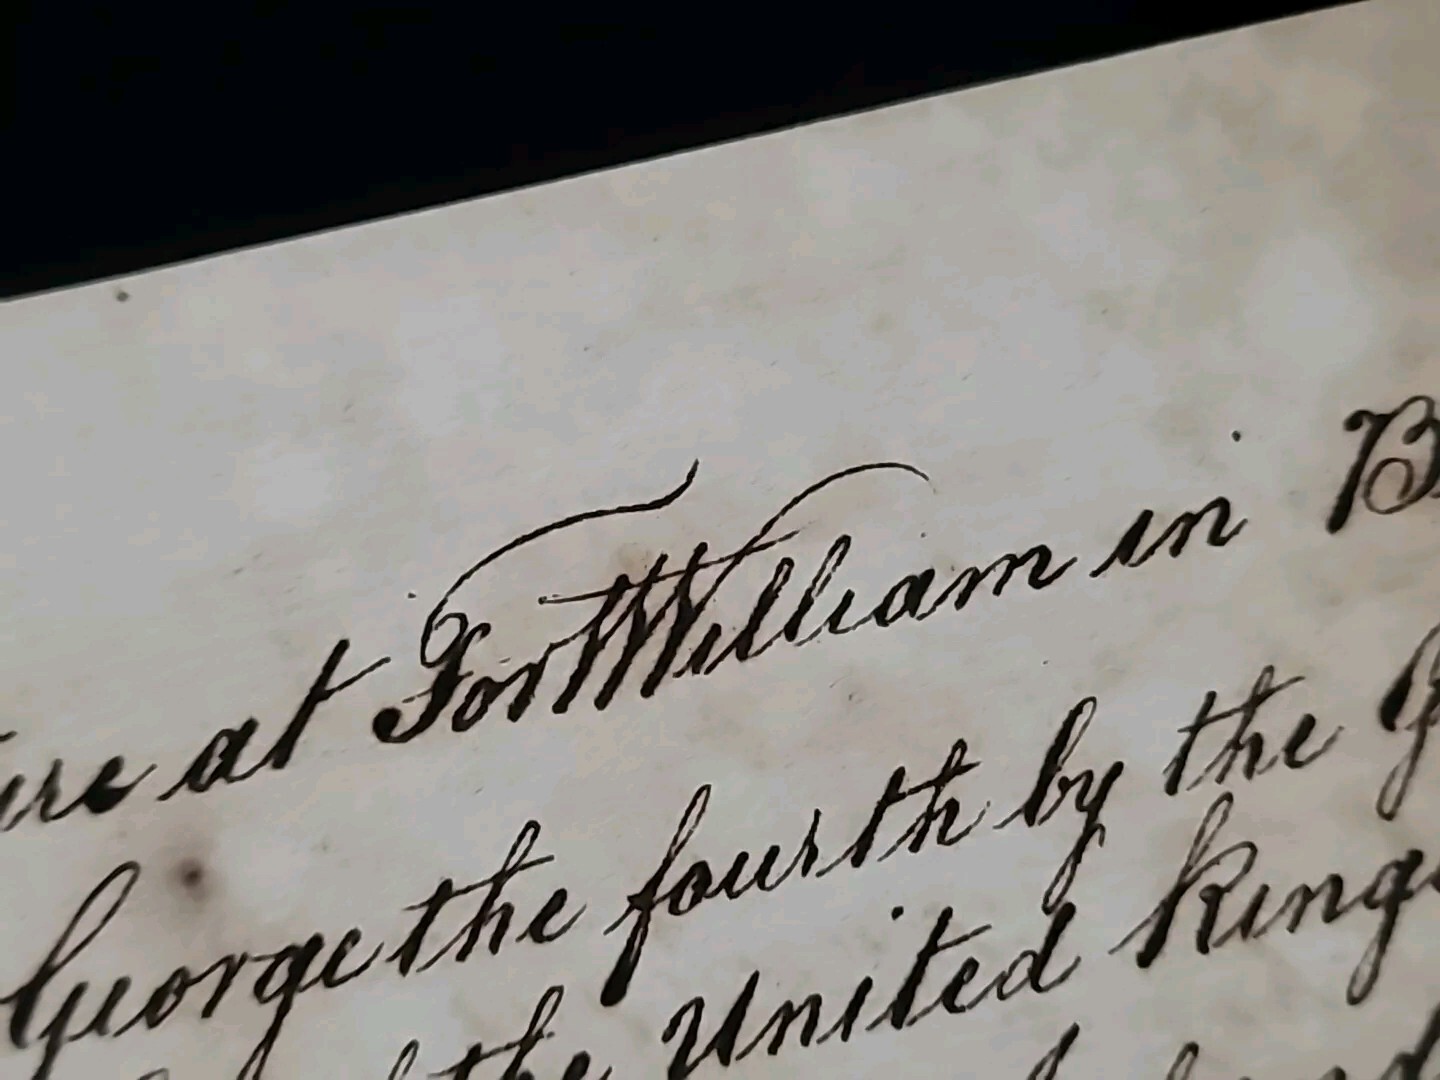 at Fort William in
George the fourth by the
the United